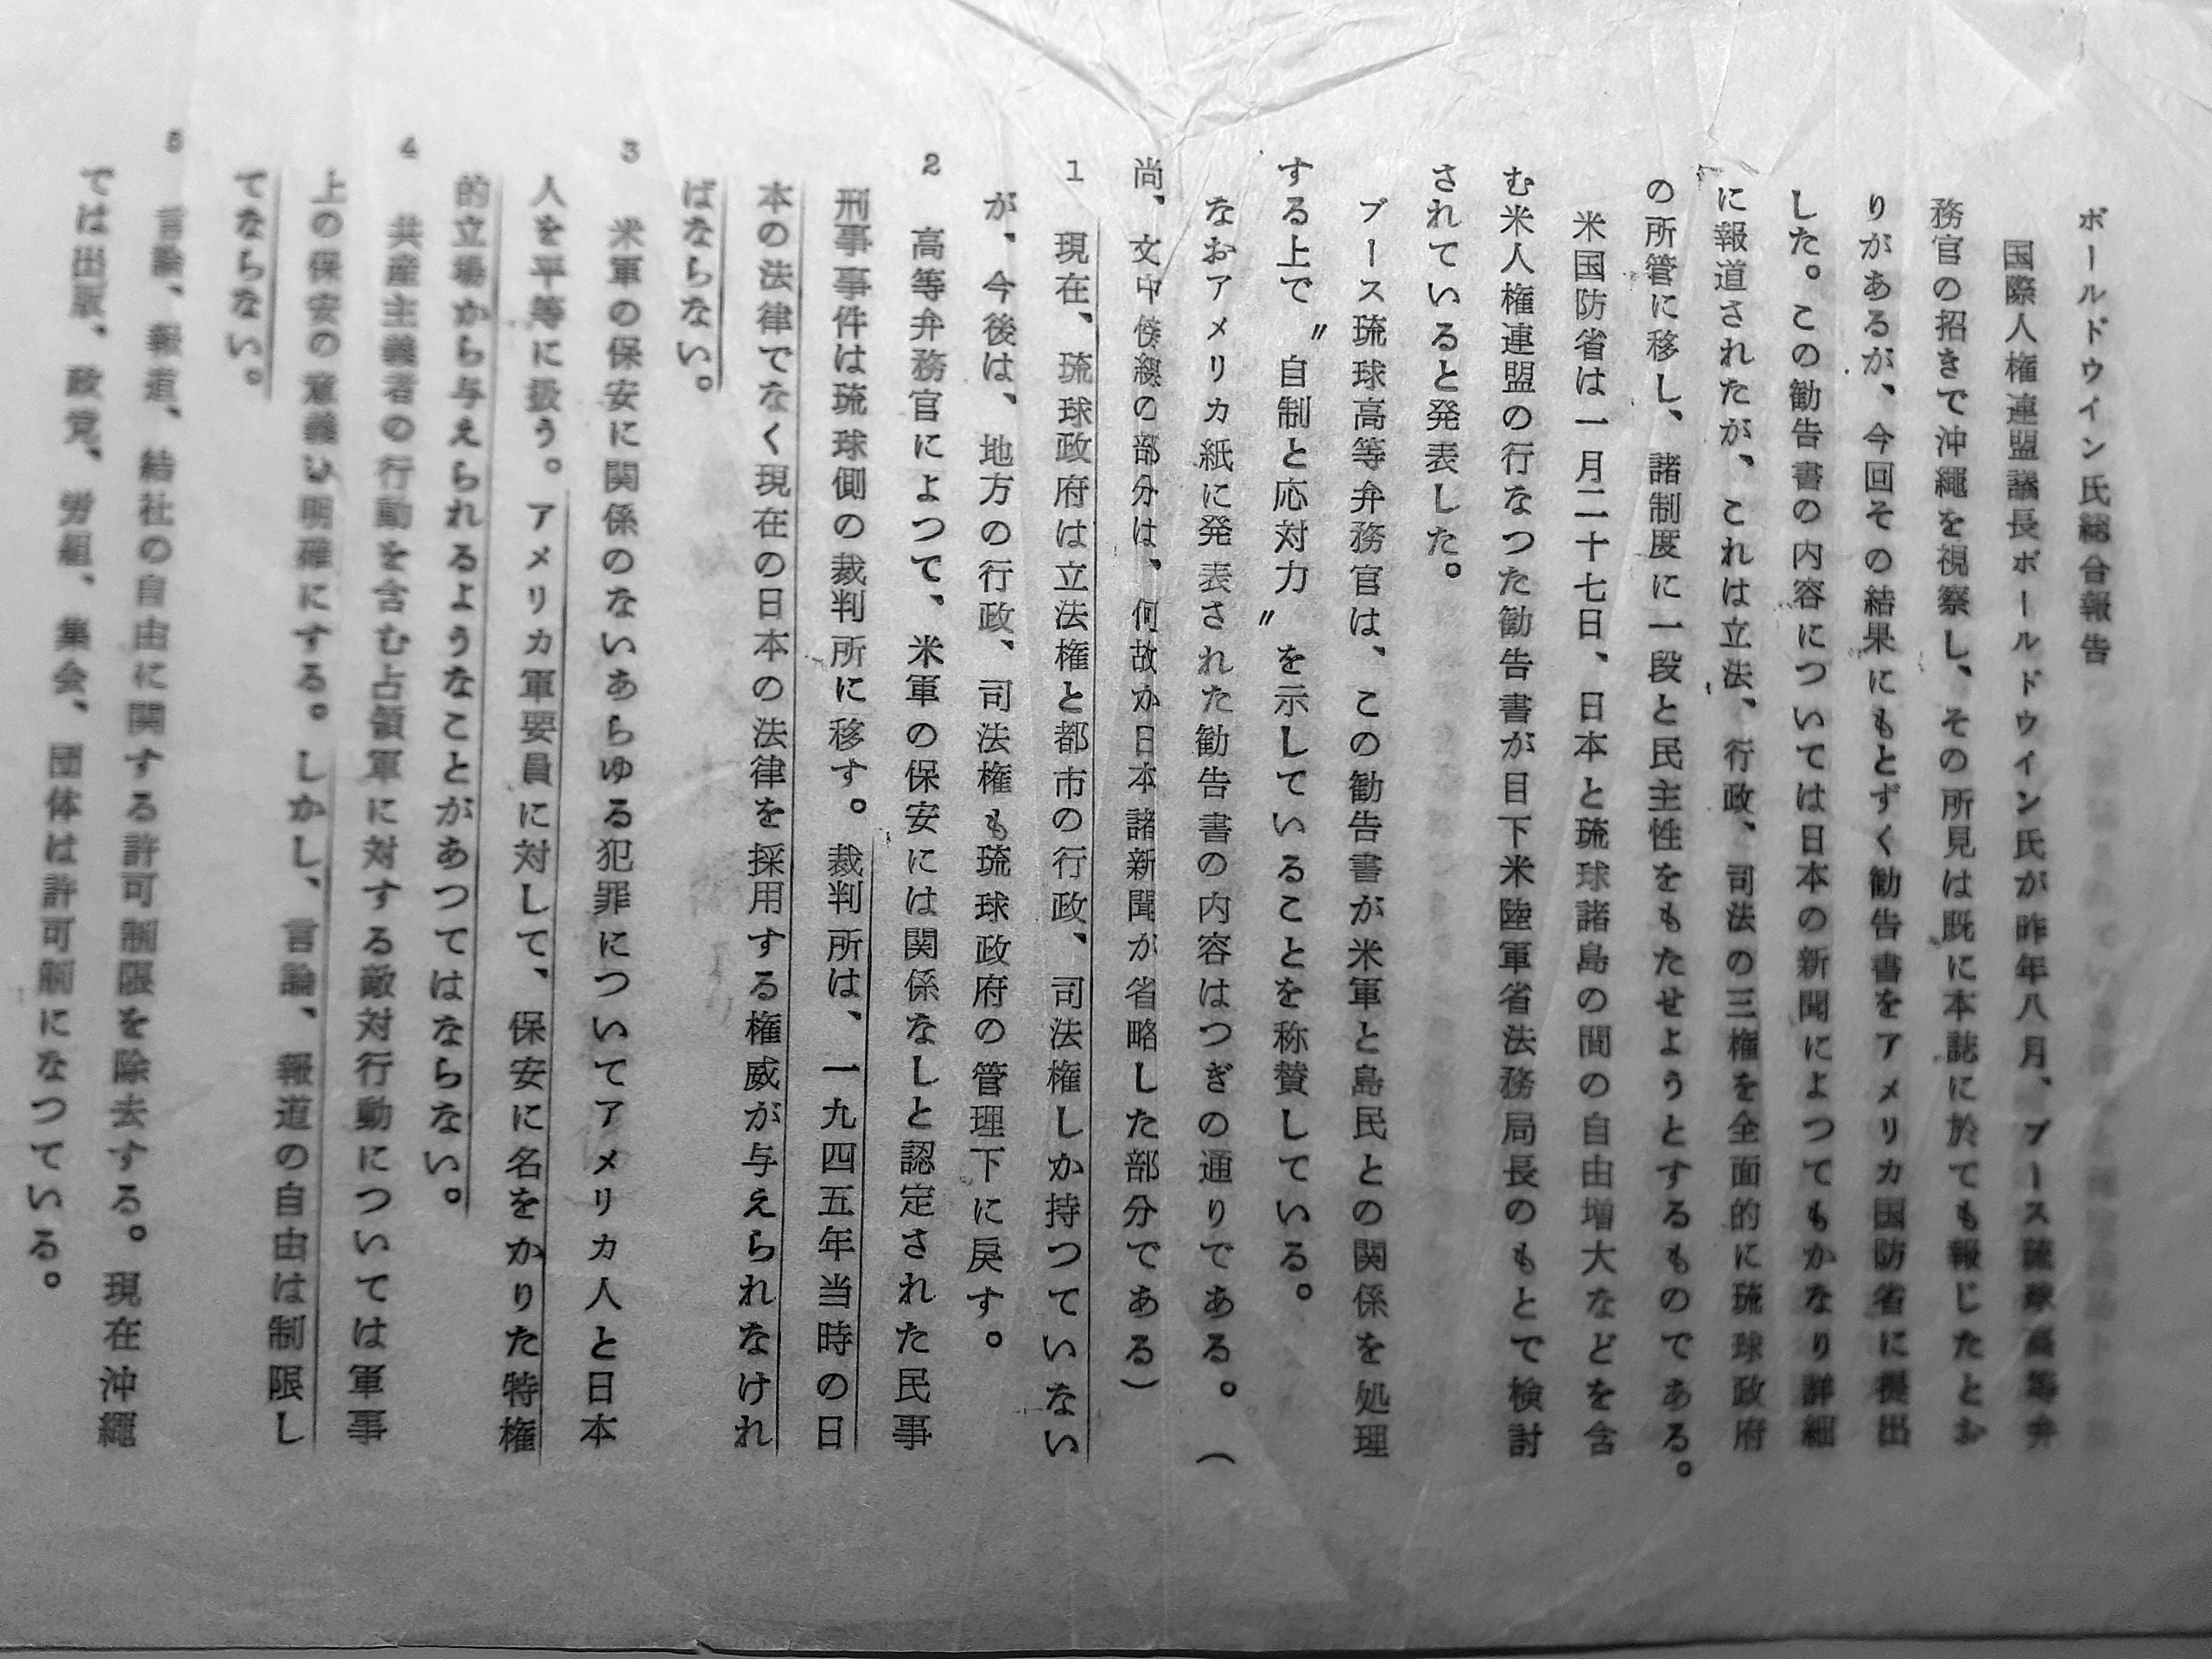 ボールドウイン氏綜合報告
国際人権連盟議長ボールドウイン氏が昨年八月、ブース琉球高等弁
務官の招きで沖縄を視察し、その所見は既に本誌に於ても報じたとお
りがあるが、今回その結果にもとずく勧告書をアメリカ国防省に提出
した。この勧告書の内容については日本の新聞によつてもかなり詳細
に報道されたが、これは立法、行政、司法の三権を全面的に琉球政府
の所管に移し、諸制度に一段と民主性をもたせようとするものである。
米国防省は一月二十七日、日本と琉球諸島の間の自由増大などを含
む米人権連盟の行なつた勧告書が目下米陸軍省法務局長のもとで検討
されていると発表した。
ブース琉球高等弁務官は、この勧告書が米軍と島民との関係を処理
する上で〃自制と応対力〃を示していることを称賛している。
なおアメリカ紙に発表された勧告書の内容はつぎの通りである。（
尚、文中傍線の部分は、何故か日本諸新聞が省略した部分である）
1 現在、琉球政府は立法権と都市の行政、司法権しか持つていない
が、今後は、地方の行政、司法権も琉球政府の管理下に戻す。
2 高等弁務官によつて、米軍の保安には関係なしと認定された民事
刑事事件は琉球側の裁判所に移す。裁判所は、一九四五年当時の日
本の法律でなく現在の日本の法律を採用する権威が与えられなけれ
ばならない。
3 米軍の保安に関係のないあらゆる犯罪についてアメリカ人と日本
人を平等に扱う。アメリカ軍要員に対して、保安に名をかりた特権
的立場から与えられるようなことがあつてはならない。
4 共産主義者の行動を含む占領軍に対する敵対行動については軍事
上の保安の意義を明確にする。しかし、言論、報道の自由は制限し
てならない。
5 言論、報道、結社の自由に関する許可制限を除去する。現在沖縄
では出版、政党、労組、集会、団体は許可制になつている。